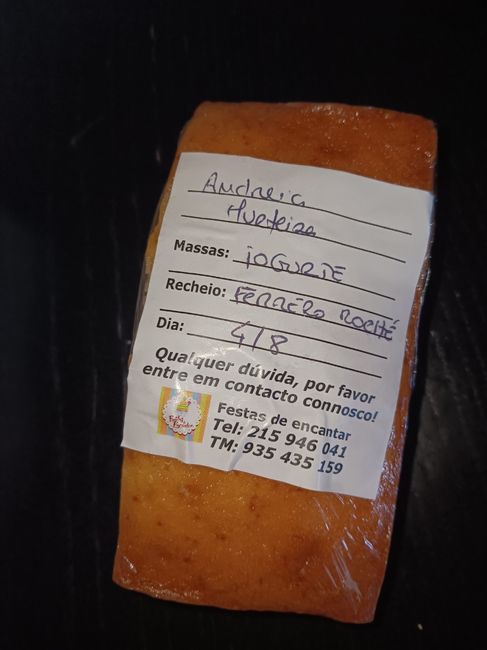 Andreia
Murteira
Massas: iOGURTE
Recheio: FERRERO ROCHÉ
Dia: 4/8
Qualquer dúvida, por favor
entre em contacto connosco!
Festas de encantar
Tel: 215 946 041
TM: 935 435 159